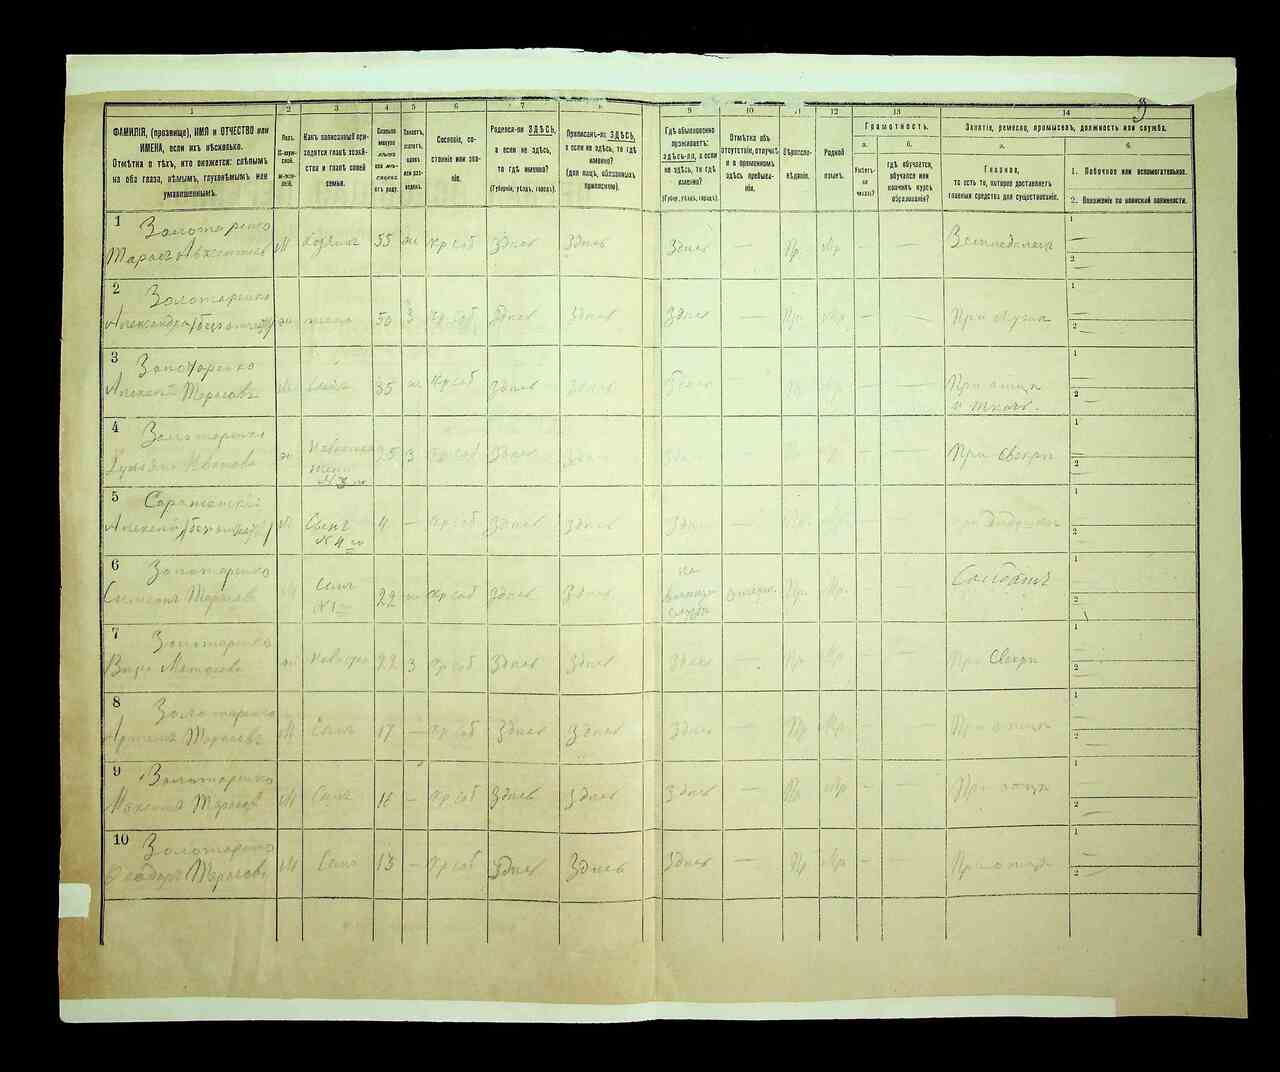 1 2 3 4 5 6 7 8 9 10 11 12 13 14
ФАМИЛІЯ, (прозвище), ИМЯ и ОТЧЕСТВО или ИМЕНА, если ихъ нѣсколько.
Отмѣтка о тѣхъ, кто окажется: слѣпымъ на оба глаза, нѣмымъ, глухонѣмымъ или умалишеннымъ.
Полъ.
М-мужской.
Ж-женскій.
Какъ записанный приходится главѣ хозяйства и главѣ своей семьи.
Сколько минуло лѣтъ или мѣсяцевъ отъ роду.
Холостъ, женатъ, вдовъ или разведенъ.
Сословіе, состояніе или званіе.
Родился-ли ЗДѢСЬ, а если не здѣсь, то гдѣ именно?
(Губернія, уѣздъ, городъ).
Приписанъ-ли ЗДѢСЬ, а если не здѣсь, то гдѣ именно?
(для лицъ, обязанныхъ припиской).
Гдѣ обыкновенно проживаетъ: ЗДѢСЬ-ЛИ, а если не здѣсь, то гдѣ именно?
(Губер., уѣздъ, городъ).
Отмѣтка объ отсутствіи, отлучкѣ и о временномъ здѣсь пребываніи.
Вѣроисповѣданіе.
Родной языкъ.
Грамотность.
а. б.
Умѣетъ-ли читать?
Гдѣ обучается, обучался или кончилъ курсъ образованія?
Занятіе, ремесло, промыселъ, должность или служба.
а. б.
Главное,
то есть то, которое доставляетъ главныя средства для существованія.
1. Побочное или вспомогательное.
2. Положеніе по воинской повинности.
1 Золотаренко
Тарасъ М Хозяинъ 55 ж Кр соб Здѣсь Здѣсь Здѣсь — Пр Мр — — Земледѣлецъ 1 — 2 —
2 Золотаренко
Александра ж жена 50 З Кр соб Здѣсь Здѣсь Здѣсь — Пр Мр — — При мужѣ 1 2 —
3 Золотаренко
Алексѣй Тарасовъ М Сынъ 35 ж Кр соб Здѣсь Здѣсь Здѣсь — Пр Мр — — При отцѣ 1 2 —
4 Золотаренко
Иванова ж Невѣстка жена №3го З Кр соб Здѣсь Здѣсь Здѣсь — — — При свекрѣ 1 2 —
5
Алексѣй М Сынъ №4го 4 — Кр соб Здѣсь Здѣсь Здѣсь — — — При дѣдушкѣ 1 2
6 Золотаренко
Тарасовъ М Сынъ №1го 22 ж Кр соб Здѣсь Здѣсь На военной службѣ Пр. Мр. — — Солдатъ 1 2 —
7 Золотаренко
ж Невѣстка 22 З Кр соб Здѣсь Здѣсь Здѣсь — Пр Мр — — При свекрѣ 1 2 —
8 Золотаренко
Артемъ Тарасовъ М Сынъ 17 — Кр соб Здѣсь Здѣсь Здѣсь — Пр Мр — — При отцѣ 1 2 —
9 Золотаренко
Максимъ Тарасовъ М Сынъ 16 — Кр соб Здѣсь Здѣсь Здѣсь — Пр Мр — — При отцѣ 1 — 2
10 Золотаренко
Ѳеодоръ Тарасовъ М Сынъ 13 — Кр соб Здѣсь Здѣсь Здѣсь — Пр Мр — — При отцѣ 1 2 —